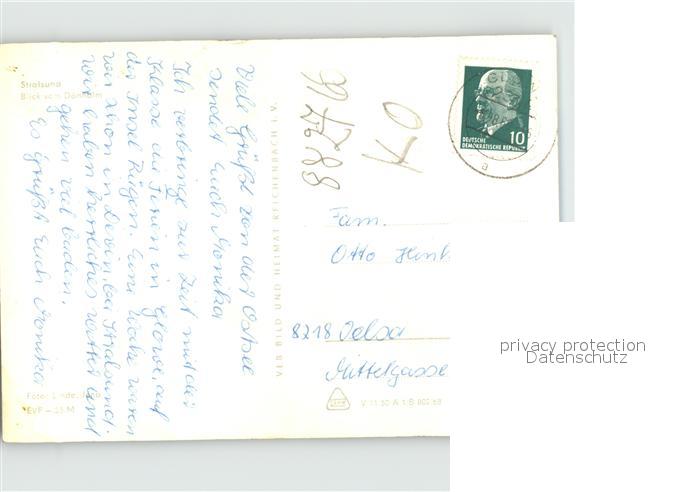 Stralsund
Blick vom Dänholm
Viele Grüße von der Ostsee
sendet Euch Monika
Ich verbringe zur Zeit mit der
Klasse die Ferien in Glowe, auf
der Insel Rügen. Eine Woche waren
wir schon in Devin, bei Stralsund.
Wir haben herrliches Wetter und
gehen viel baden.
Es grüßt Euch Monika
EVP
VEB BILD UND HEIMAT REICHENBACH I. V.
10
DEUTSCHE
DEMOKRATISCHE REPUBLIK
a
Fam.
Otto
8218 Oelsa
Mittelgasse
privacy protection
Datenschutz